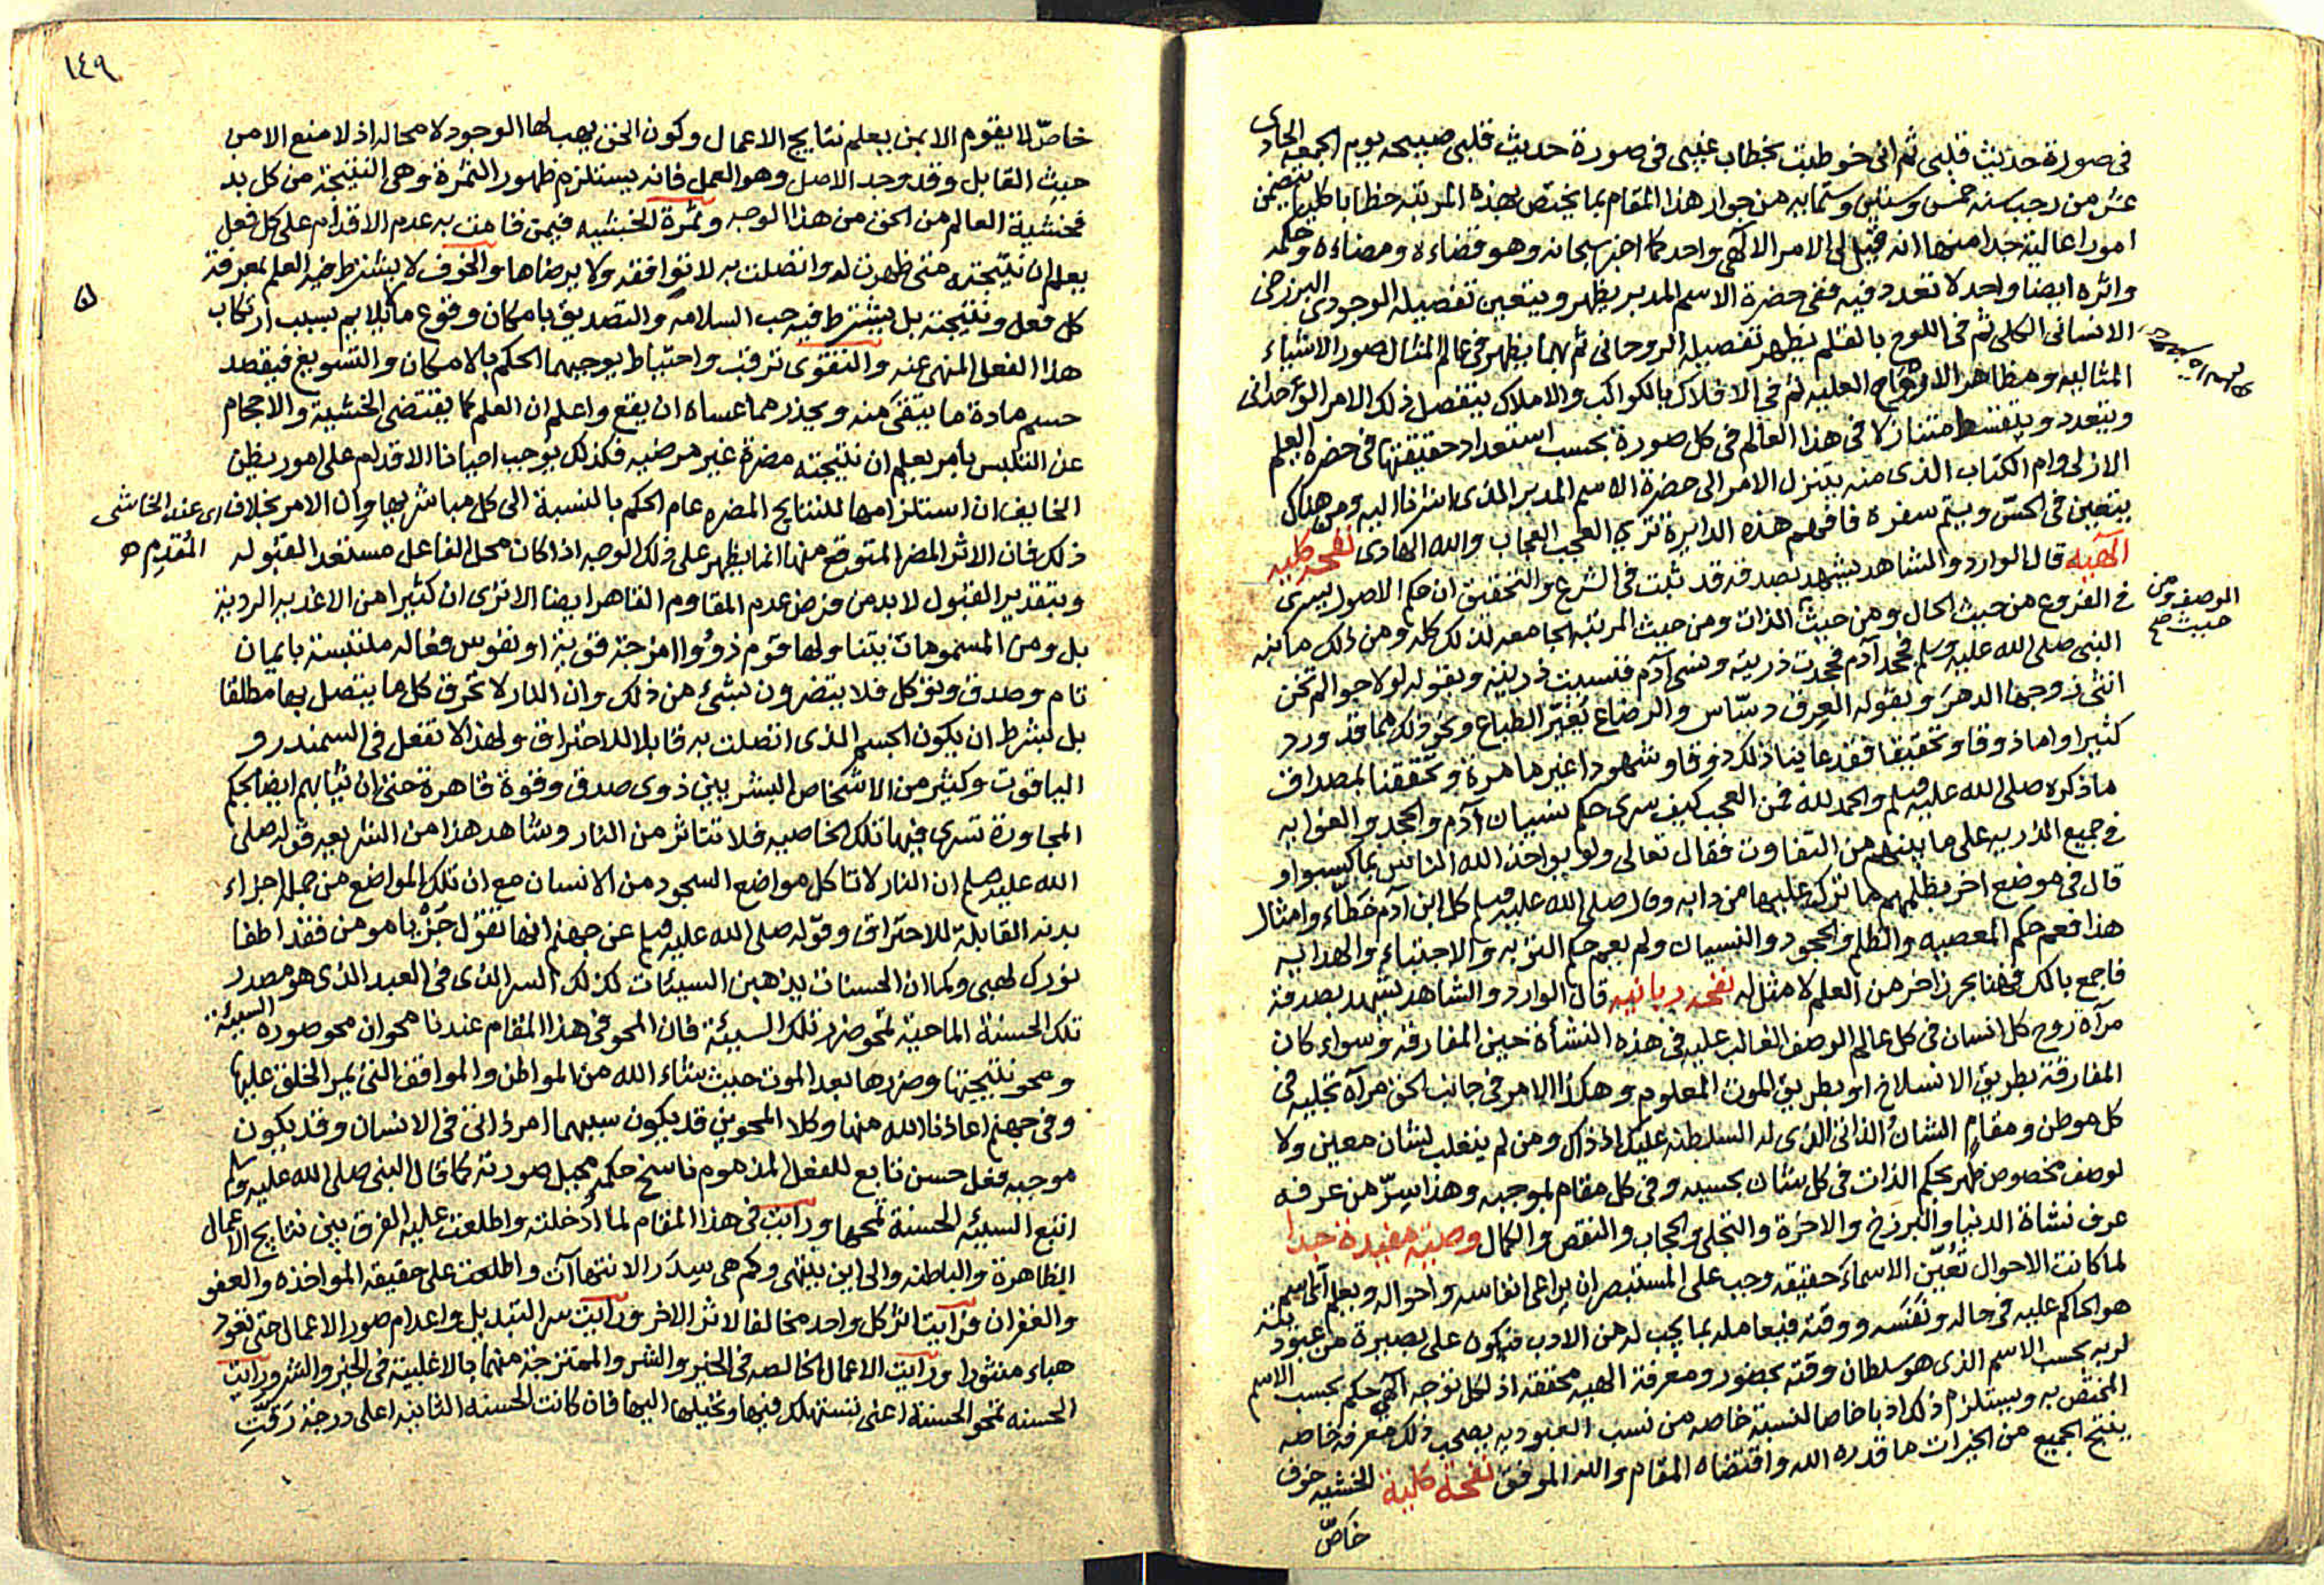 في صورة حديث قلبي ثم اني خوطبت بخطاب غيبي في صورة حديث قلبي صبيحه يوم الجمعه الحادي
عشر من رجب سنه خمس وستين وستمايه من جوار هذا المقام بما يختص بهذه المرتبه خطابا كليا يتضمن
امورا عالية جدا منها انه قيل لي الامر الالهي واحد كما اخبر سبحانه وهو قضاءه ومضاءه وحكمه
واثره ايضا واحد لا تعدد فيه ففي حضرة الاسم المدبر يظهر ويتعين تفصيله الوجودي البرزخي
الانساني الكلي ثم في اللوح بالقلم يظهر تفصيله الروحاني ثم بهما يظهر في عالم المثال صور الاشياء
المثاليه ومظاهر الارواح العليه ثم في الافلاك بالكواكب والاملاك يتفصل ذلك الامر الوحداني
ويتعدد ويتقسط متنازلا في هذا العالم في كل صورة بحسب استعداد حقيقتها في حضرة العلم
الازلي وام الكتاب الذي منه يتنزل الامر الى حضرة الاسم المدبر الذي اشرنا اليه ومن هناك
يتعين في الحس ويتم سفره فافهم هذه الدايرة ترى العجب العجاب والله الهادي نفحه كليه
الهيه قال الوارد والشاهد يشهد بصدقه قد ثبت في الشرع والتحقيق ان حكم الاصول يسرى
في الفروع من حيث الحال ومن حيث الذات ومن حيث المرتبه الجامعه لذلك كله ومن ذلك ما نبه
الوصف ومن
حيث صح
النبي صلى الله عليه وسلم فجحد آدم فجحدت ذريته ونسى آدم فنسيت ذريته وبقوله لولا حوا لم تخن
انثى زوجها الدهر وبقوله العرق دساس والرضاع يغير الطباع ونحو ذلك مما قد ورد
كثيرا واما ذوقا وتحقيقا فقد عاينا ذلك ذوقا وشهودا غير ما مرة وتحققنا بمصداق
ما ذكره صلى الله عليه وسلم والحمد لله فمن العجب كيف سرى حكم نسيان آدم والجحد والغوايه
في جميع الذريه على ما بينهم من التفاوت فقال تعالى ولو يواخذ الله الناس بما كسبوا و
قال في موضع اخر بظلمهم ما ترك عليها من دابه وقال صلى الله عليه وسلم كل ابن آدم خطاء وامثال
هذا فعم حكم المعصيه والظلم والجحود والنسيان ولم يعم حكم التوبه والاجتباء والهدايه
فاجمع بالك فهنا بحر زاخر من العلم لا مثل له نفحه ربانيه قال الوارد والشاهد يشهد بصدقه
مرآة روح كل انسان في كل عالم الوصف الغالب عليه في هذه النشأة حين المفارقه وسواء كان
المفارقة بطريق الانسلاخ او بطريق الموت المعلوم وهكذا الامر في جانب الحق مرآة تجليه في
كل موطن ومقام الشان الذاتي الذي له السلطنه عليك اذ ذاك ومن لم ينغلب لشان معين ولا
لوصف مخصوص ظهر بحكم الذات في كل شان بحسبه وفي كل مقام بموجبه وهذا سر من عرفه
عرف نشاة الدنيا والبرزخ والاخرة والتجلي والحجاب والنقص والكمال وصيه مفيدة جدا
لما كانت الاحوال تعين الاسماء حقيقه وجب على المستبصر ان يراعي انفاسه واحواله ويعلم اى اسم
هو الحاكم عليه في حاله ونفسه ووقته فيعامله بما يجب له من الادب فيكون على بصيرة من عبوديته
لربه بحسب الاسم الذي هو سلطان وقته بحضور ومعرفة الهيه محققه اذ لكل توجه الهي حكم بحسب الاسم
المختص به ويستلزم ذلك ادبا خاصا لنسبة خاصه من نسب العبوديه يصحب ذلك معرفه خاصه
ينتج الجميع من الخيرات ما قدره الله واقتضاه المقام والله الموفق نفحة كلية الخشيه خوف
خاص
١٤٩
خاص لا يقوم الا بمن يعلم نتايج الاعمال وكون الحق يهب لها الوجود لا محاله اذ لا منع الا من
حيث القابل وقد وجد الاصل وهو العمل فانه يستلزم ظهور الثمرة وهي النتيجة من كل بد
فخشية العالم من الحق من هذا الوجه وثمرة الخشيه فيمن قامت به عدم الاقدام على كل فعل
يعلم ان نتيجته متى ظهرت له واتصلت به لا توافقه ولا يرضاها والخوف لا يشترط فيه العلم بمعرفة
كل فعل ونتيجته بل يشترط فيه حب السلامه والتصديق بامكان وقوع ما لا يلايم بسبب ارتكاب
هذا الفعل المنهى عنه والتقوى ترقب واحتياط يوجبهما الحكم بالامكان والتسويغ فيقصد
حسم مادة ما يتقى منه ويحذر مما عساه ان يقع واعلم ان العلم كما يقتضى الخشية والاحجام
عن التلبس بامر يعلم ان نتيجته مضرة غير مرضيه فكذلك يوجب احيانا الاقدام على امور يظن
الخايف ان استلزامها للنتايج المضره عام الحكم بالنسبة الى كل مباشر بها وان الامر بخلاف
اي عند الخاشى
المقدم ه
ذلك فان الاثر المضر المتوقع منها انما يظهر على ذلك الوجه اذا كان محل الفاعل مستعدا لقبوله
وبتقدير القبول لا بد من فرض عدم المقاوم القاهر ايضا الا ترى ان كثيرا من الاغذيه الرديه
بل ومن المسمومات يتناولها قوم ذووا امزجة قويه او نفوس فعاله ملتبسة بايمان
تام وصدق وتوكل فلا يتضررون بشئ من ذلك وان النار لا تحرق كل ما يتصل بها مطلقا
بل بشرط ان يكون الجسم الذي اتصلت به قابلا للاحتراق ولهذا لا تفعل في السمندر و
الياقوت وكثير من الاشخاص البشريين ذوى صدق وقوة قاهرة حتى ان ثيابهم ايضا بحكم
المجاورة تسرى فيها تلك الخاصيه فلا تتاثر من النار وشاهد هذا من الشريعه قوله صلى
الله عليه وسلم ان النار لا تاكل مواضع السجود من الانسان مع ان تلك المواضع من جملة اجزاء
بدنه القابلة للاحتراق وقوله صلى الله عليه وسلم عن جهنم انها تقول جز يا مومن فقد اطفا
نورك لهبي وكما ان الحسنات يذهبن السيئات كذلك السر الذي في العبد الذي هو مصدر
تلك الحسنة الماحية تمحو ضرر تلك السيئة فان المحو في هذا المقام عندنا محوان محو صورة السيئة
ومحو نتيجتها وضررها بعد الموت حيث شاء الله من المواطن والمواقف التي يمر الخلق عليها
وفي جهنم اعاذنا الله منها وكلا المحوين قد يكون سببهما امر ذاتي في الانسان وقد يكون
موجبه فعل حسن تابع للفعل المذموم ناسخ حكمه صورته كما قال النبي صلى الله عليه وسلم
اتبع السيئه الحسنة تمحها ورايت في هذا المقام لما ادخلته واطلعت عليه الفرق بين نتايج الاعمال
الظاهرة والباطنه والى اين ينتهى وكم هي سدر الانتهاآت واطلعت على حقيقة المواخذه والعفو
والغفران فرايت اثر كل واحد مخالفا لاثر الاخر ورايت سر التبديل واعدام صور الاعمال حتى تعود
هباء منثورا ورايت الاعمال الخالصه في الخير والشر والممتزجة منهما بالاغلبية في الخير والشر ورايت
الحسنه تمحو الحسنة اعنى تستهلك فيها وتحيلها اليها فان كانت الحسنه الثانيه اعلى درجة رقت